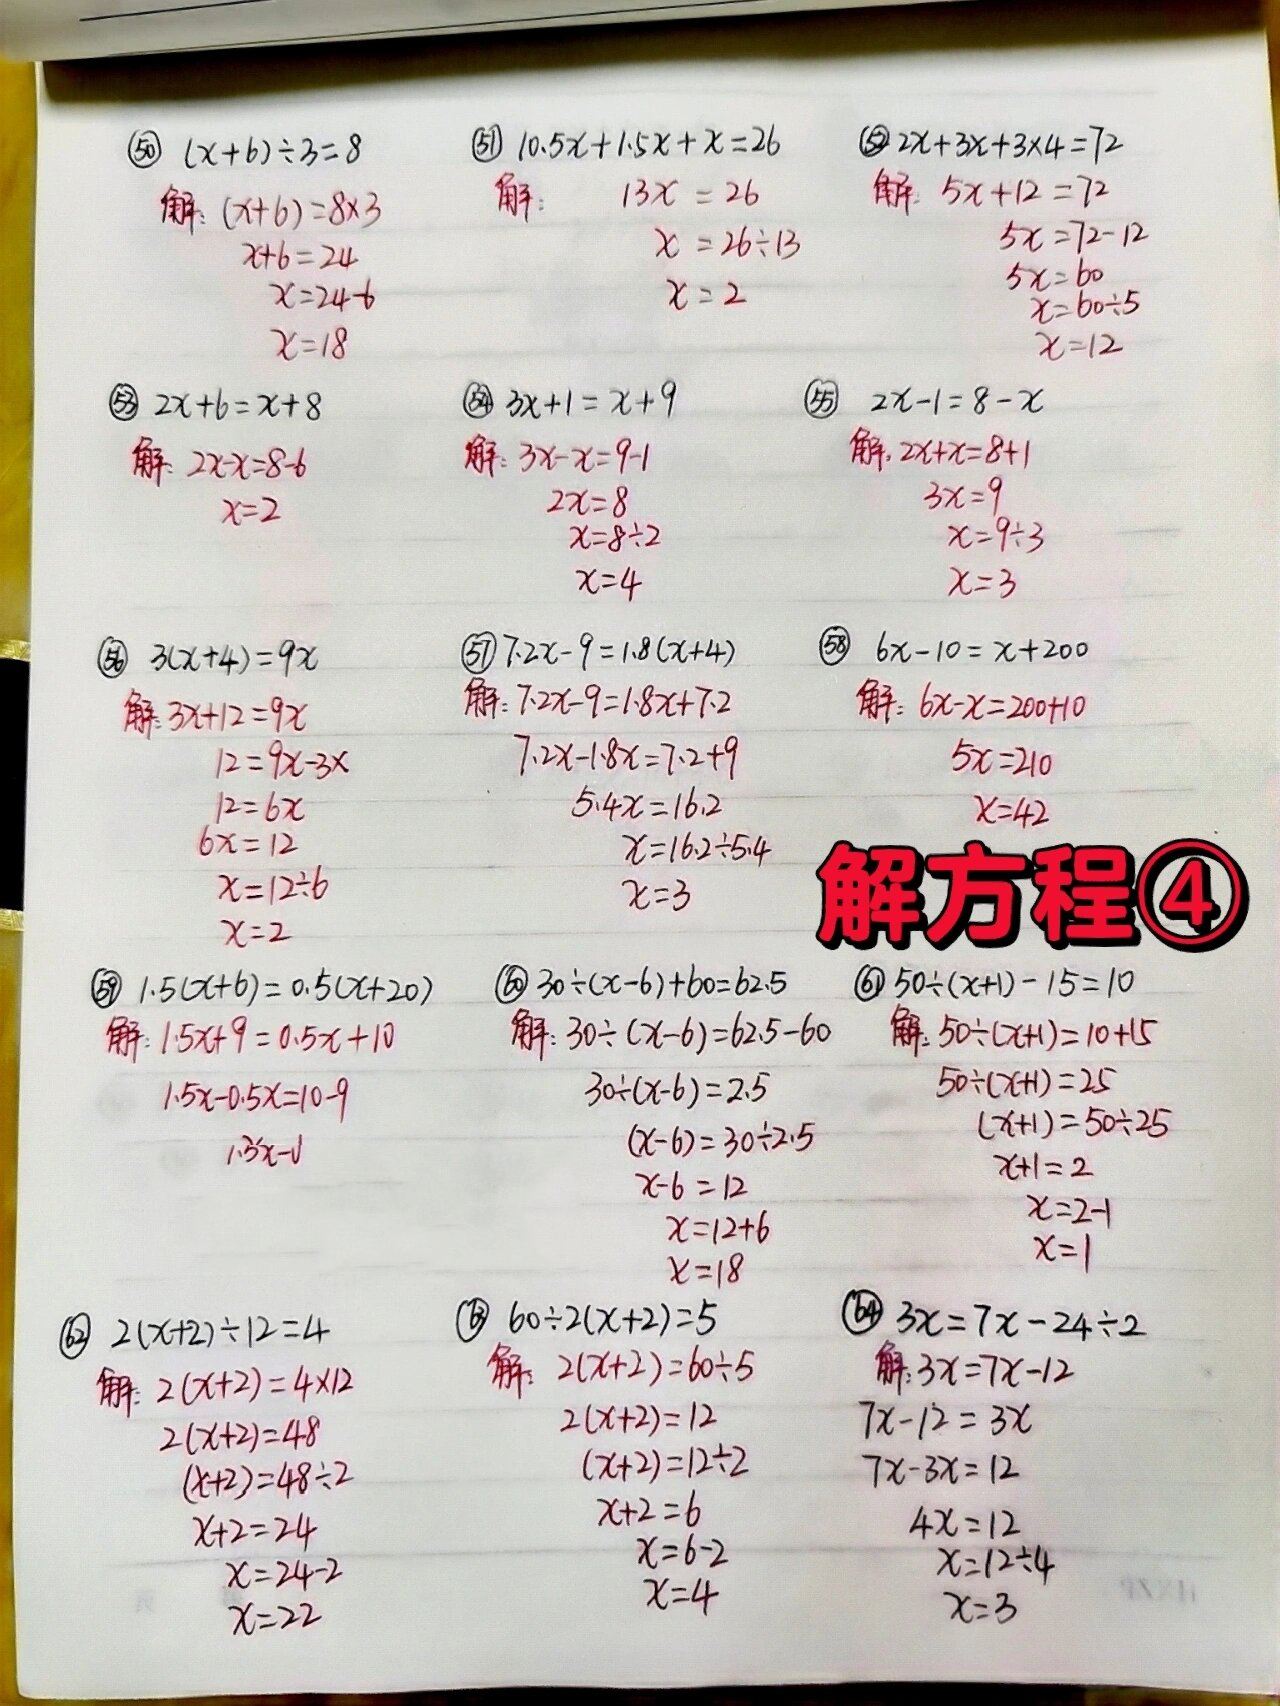 ㊿ (x+6)÷3=8
解: (x+6)=8×3
x+6=24
x=24-6
x=18
51 10.5x+1.5x+x=26
解: 13x=26
x=26÷13
x=2
52 2x+3x+3×4=72
解: 5x+12=72
5x=72-12
5x=60
x=60÷5
x=12
53 2x+6=x+8
解: 2x-x=8-6
x=2
54 3x+1=x+9
解: 3x-x=9-1
2x=8
x=8÷2
x=4
55 2x-1=8-x
解: 2x+x=8+1
3x=9
x=9÷3
x=3
56 3(x+4)=9x
解: 3x+12=9x
12=9x-3x
12=6x
6x=12
x=12÷6
x=2
57 7.2x-9=1.8(x+4)
解: 7.2x-9=1.8x+7.2
7.2x-1.8x=7.2+9
5.4x=16.2
x=16.2÷5.4
x=3
58 6x-10=x+200
解: 6x-x=200+10
5x=210
x=42
解方程④
59 1.5(x+6)=0.5(x+20)
解: 1.5x+9=0.5x+10
1.5x-0.5x=10-9
60 30÷(x-6)+60=62.5
解: 30÷(x-6)=62.5-60
30÷(x-6)=2.5
(x-6)=30÷2.5
x-6=12
x=12+6
x=18
61 50÷(x+1)-15=10
解: 50÷(x+1)=10+15
50÷(x+1)=25
(x+1)=50÷25
x+1=2
x=2-1
x=1
62 2(x+2)÷12=4
解: 2(x+2)=4×12
2(x+2)=48
(x+2)=48÷2
x+2=24
x=24-2
x=22
63 60÷2(x+2)=5
解: 2(x+2)=60÷5
2(x+2)=12
(x+2)=12÷2
x+2=6
x=6-2
x=4
64 3x=7x-24÷2
解: 3x=7x-12
7x-12=3x
7x-3x=12
4x=12
x=12÷4
x=3